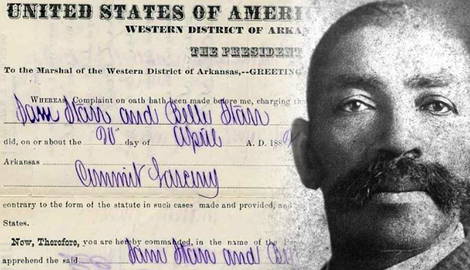 UNITED STATES OF AMERIC
WESTERN DISTRICT OF ARKA
THE PRESIDENT
To the Marshal of the Western District of Arkansas,--GREETING
WHEREAS Complaint on oath hath been made before me, charging th
Sam Starr and Belle Starr
did, on or about the 20 day of April A. D. 188
Arkansas
Commit Larceny
contrary to the form of the statute in such cases made and provided, and
States.
Now, Therefore, you are hereby commanded, in the name of the
apprehend the said Sam Starr and Bel